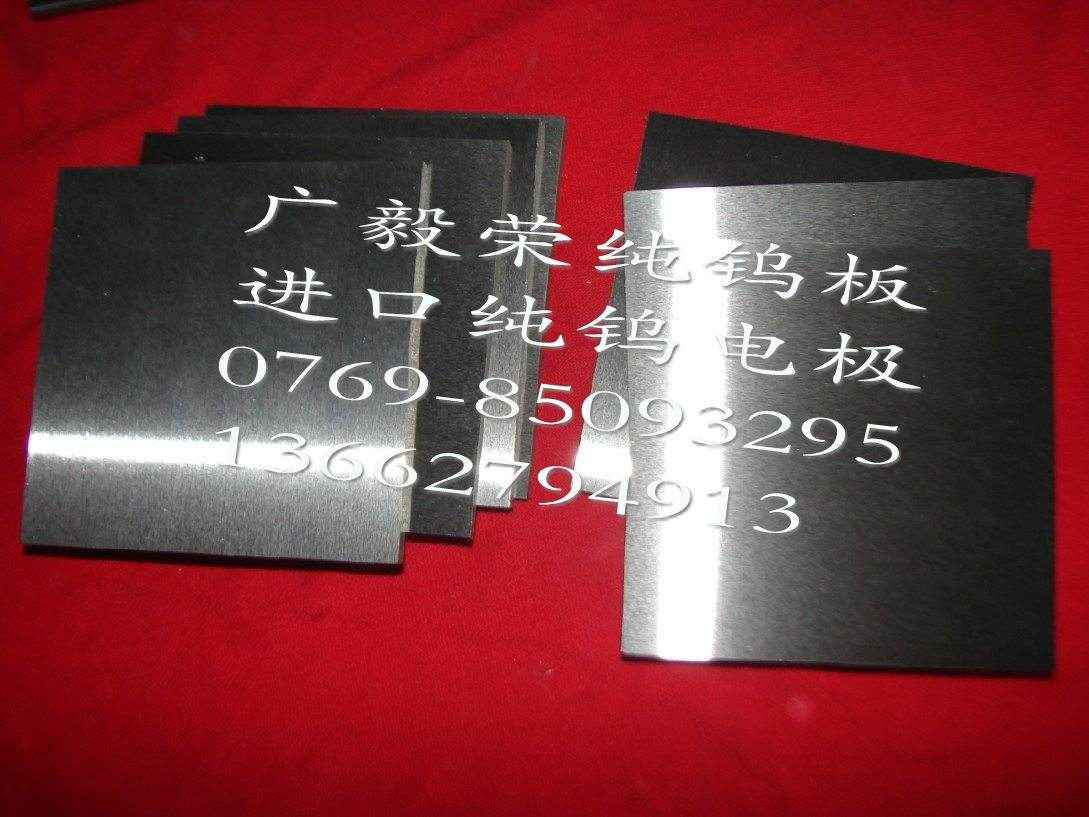 广毅荣纯钨板
进口纯钨电极
0769-85093295
13662794913